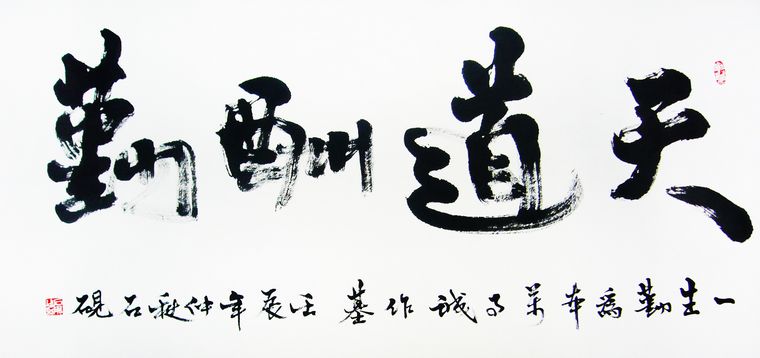 天道酬勤
一生勤為本萬事誠作基壬辰年仲秋石硯